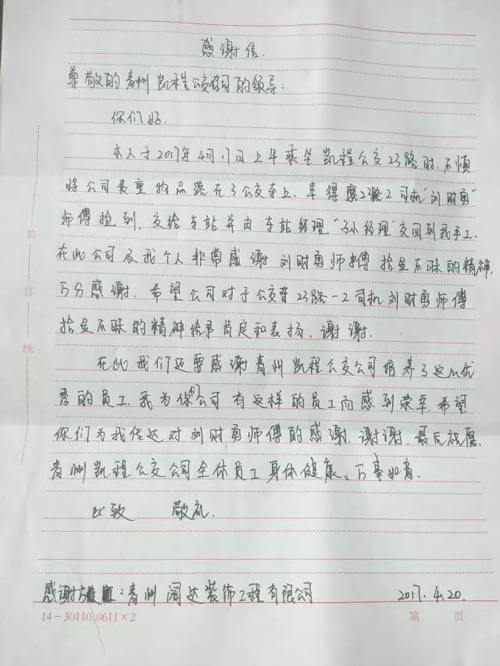 感谢信.
尊敬的青州凯程公交公司的领导:
你们好.
本人于2017年4月17日上午乘坐凯程公交23路时.不慎
将公司贵重物品落在了公交车上.幸得 司机"刘财勇"
师傅捡到.交给车站并由车站经理"孙经理"交回到我手上.
在此公司及我个人非常感谢刘财勇师傅拾金不昧的精神,
万分感谢.希望公司对于公交车23路-2司机刘财勇师傅
拾金不昧的精神给予肯定和表扬,谢谢.
在此我们还要感谢青州凯程公交公司培养了这么优
秀的员工.我为你公司有这样的员工而感到荣幸.希望
你们为我传达对刘财勇师傅的感谢.谢谢.最后祝愿.
青州凯程公交公司全体员工身体健康、万事如意.
此致 敬礼.
感谢 :青州阔达装饰工程有限公司 2017.4.20.
14-30110.0611×2 第 页
装
订
线